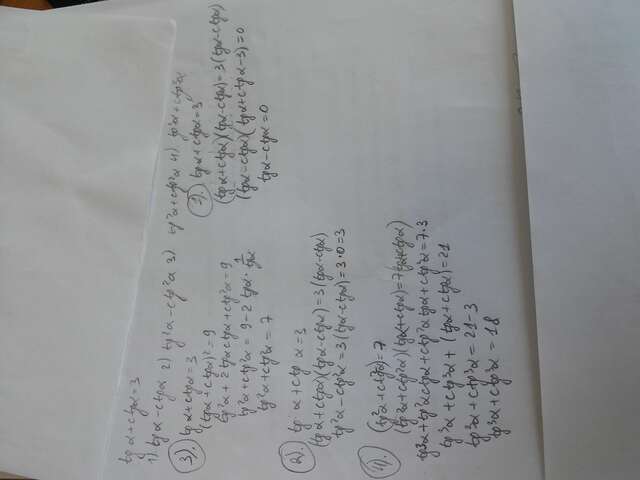 tgα+ctgα=3
1) tgα-ctgα 2) tg²α-ctg²α 3) tg²α+ctg²α 4) tg³α+ctg³α
3). tgα+ctgα=3
(tgα+ctgα)²=9
tg²α+2tgα·ctgα+ctg²α=9
tg²α+ctg²α=9-2tgα·1/tgα
tg²α+ctg²α=7
1). tgα+ctgα=3
(tgα+ctgα)(tgα-ctgα)=3(tgα-ctgα)
(tgα-ctgα)(tgα+ctgα-3)=0
tgα-ctgα=0
2). tgα+ctgα=3
(tgα+ctgα)(tgα-ctgα)=3(tgα-ctgα)
tg²α-ctg²α=3(tgα-ctgα)=3·0=3
4). (tg²α+ctg²α)=7
(tg²α+ctg²α)(tgα+ctgα)=7(tgα+ctgα)
tg³α+tg²αctgα+ctg²αtgα+ctg³α=7·3
tg³α+ctg³α+(tgα+ctgα)=21
tg³α+ctg³α=21-3
tg³α+ctg³α=18